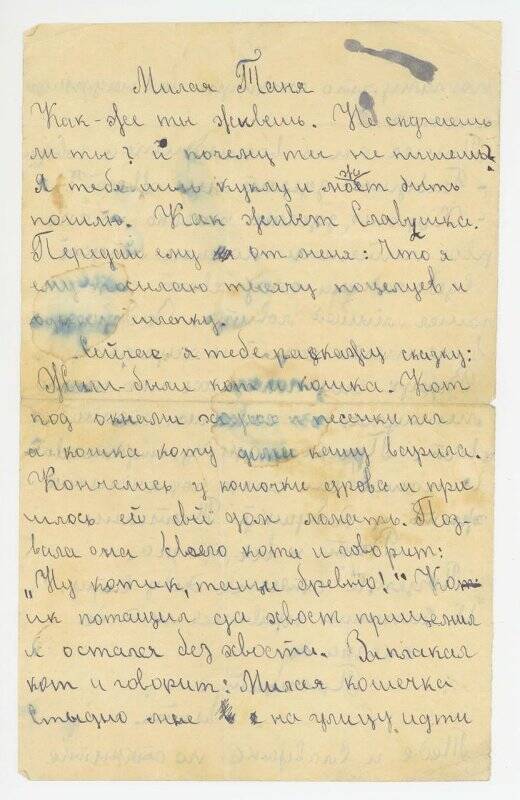 Милая Таня
Как-же ты живешь. Не скучаешь
ли ты? и почему ты не пишешь?
Я тебе шью куклу и может быть
пошлю. Как живет Славушка.
Передай ему от меня: Что я
ему посылаю тысячу поцелуев и
шлепку.
Сейчас я тебе раскажу сказку:
Жили-были кот и кошка. Кот
под окнами ходил песенки пел
а кошка коту дома кашу варила.
Кончелись у кошечки дрова и при
шлось ей свой дом ломать. Поз-
вала она своего кота и говорит:
„Ну котик, тащи бревно!" Кот
ик потащил да хвост прищемил
и остался без хвоста. Заплакал
кот и говорит: Милая кошечка
стыдно мне на улицу идти